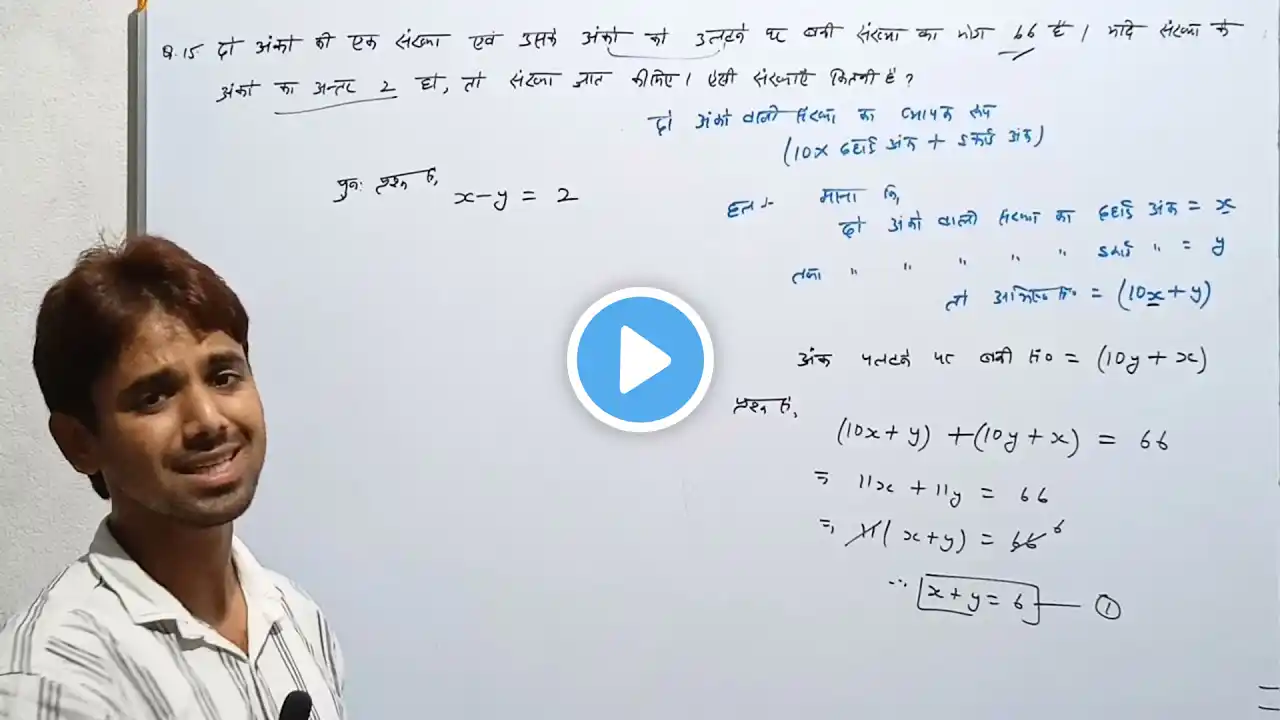 Q.15 दो अंकों की एक संख्या एवं उसके अंकों को उलटने पर बनी संख्या का योग 66 है। यदि संख्या के
अंकों का अन्तर 2 हो, तो संख्या ज्ञात कीजिए। ऐसी संख्याएँ कितनी हैं?
दो अंकों वाली संख्या का व्यापक रूप
(10 x दहाई अंक + इकाई अंक)
पुनः प्रश्न से, x-y = 2
हल :- माना कि,
दो अंकों वाली संख्या का दहाई अंक = x
तथा " " " " " इकाई " = y
तो अभिष्ट सं० = (10x+y)
अंक पलटने पर बनी सं० = (10y + x)
प्रश्न से,
(10x+y) +(10y+x) = 66
⇒ 11x + 11y = 66
⇒, 11( x+y) = 66 6
∴ x + y = 6 — ①